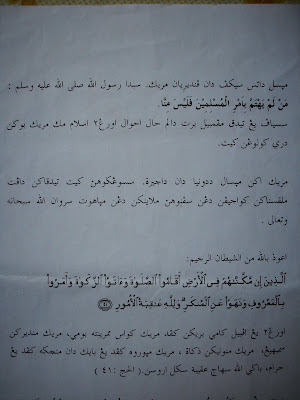 مڽسل داتس سيکڤ دان ڤنديريان مريك. سبدا رسول الله صلى الله عليه وسلم :
مَنْ لَمْ يَهْتَمَّ بِأَمْرِ الْمُسْلِمِيْنَ فَلَيْسَ مِنَّا.
سسياڤ يڠ تيدق مڠمبيل برت دالم حال احوال اورڠ٢ اسلام مك مريك بوكن
دري ݢولوڠن كيت.
مريك اكن مڽسال ددونيا دان داخيرة. سسوڠݢوهڽ كيت تيدقاكن داڤت
ملڤسكن كواجيڤن دڠن سڤنوهڽ ملاينكن دڠن مڽاهوت سروان الله سبحانه
وتعالى .
اعوذ بالله من الشيطان الرجيم:
ٱلَّذِينَ إِن مَّكَّنَّٰهُمْ فِى ٱلْأَرْضِ أَقَامُوا۟ ٱلصَّلَوٰةَ وَءَاتَوُا۟ ٱلزَّكَوٰةَ وَأَمَرُوا۟
بِٱلْمَعْرُوفِ وَنَهَوْا۟ عَنِ ٱلْمُنكَرِ ۗ وَلِلَّهِ عَٰقِبَةُ ٱلْأُمُورِ ﴿٤١﴾
اورڠ٢ يڠ اڤبيل كامي بريكن كڤد مريك كواس ممرينته بومي، مريك منديريكن
سمبهيڠ، مريك منونيكن زكاة ، مريك مڽوروه كڤد يڠ بايك دان منچݢه كڤد يڠ
حرام، باݢي الله سهاج عاقبة سݢل اوروسن.( الحج :٤١ )